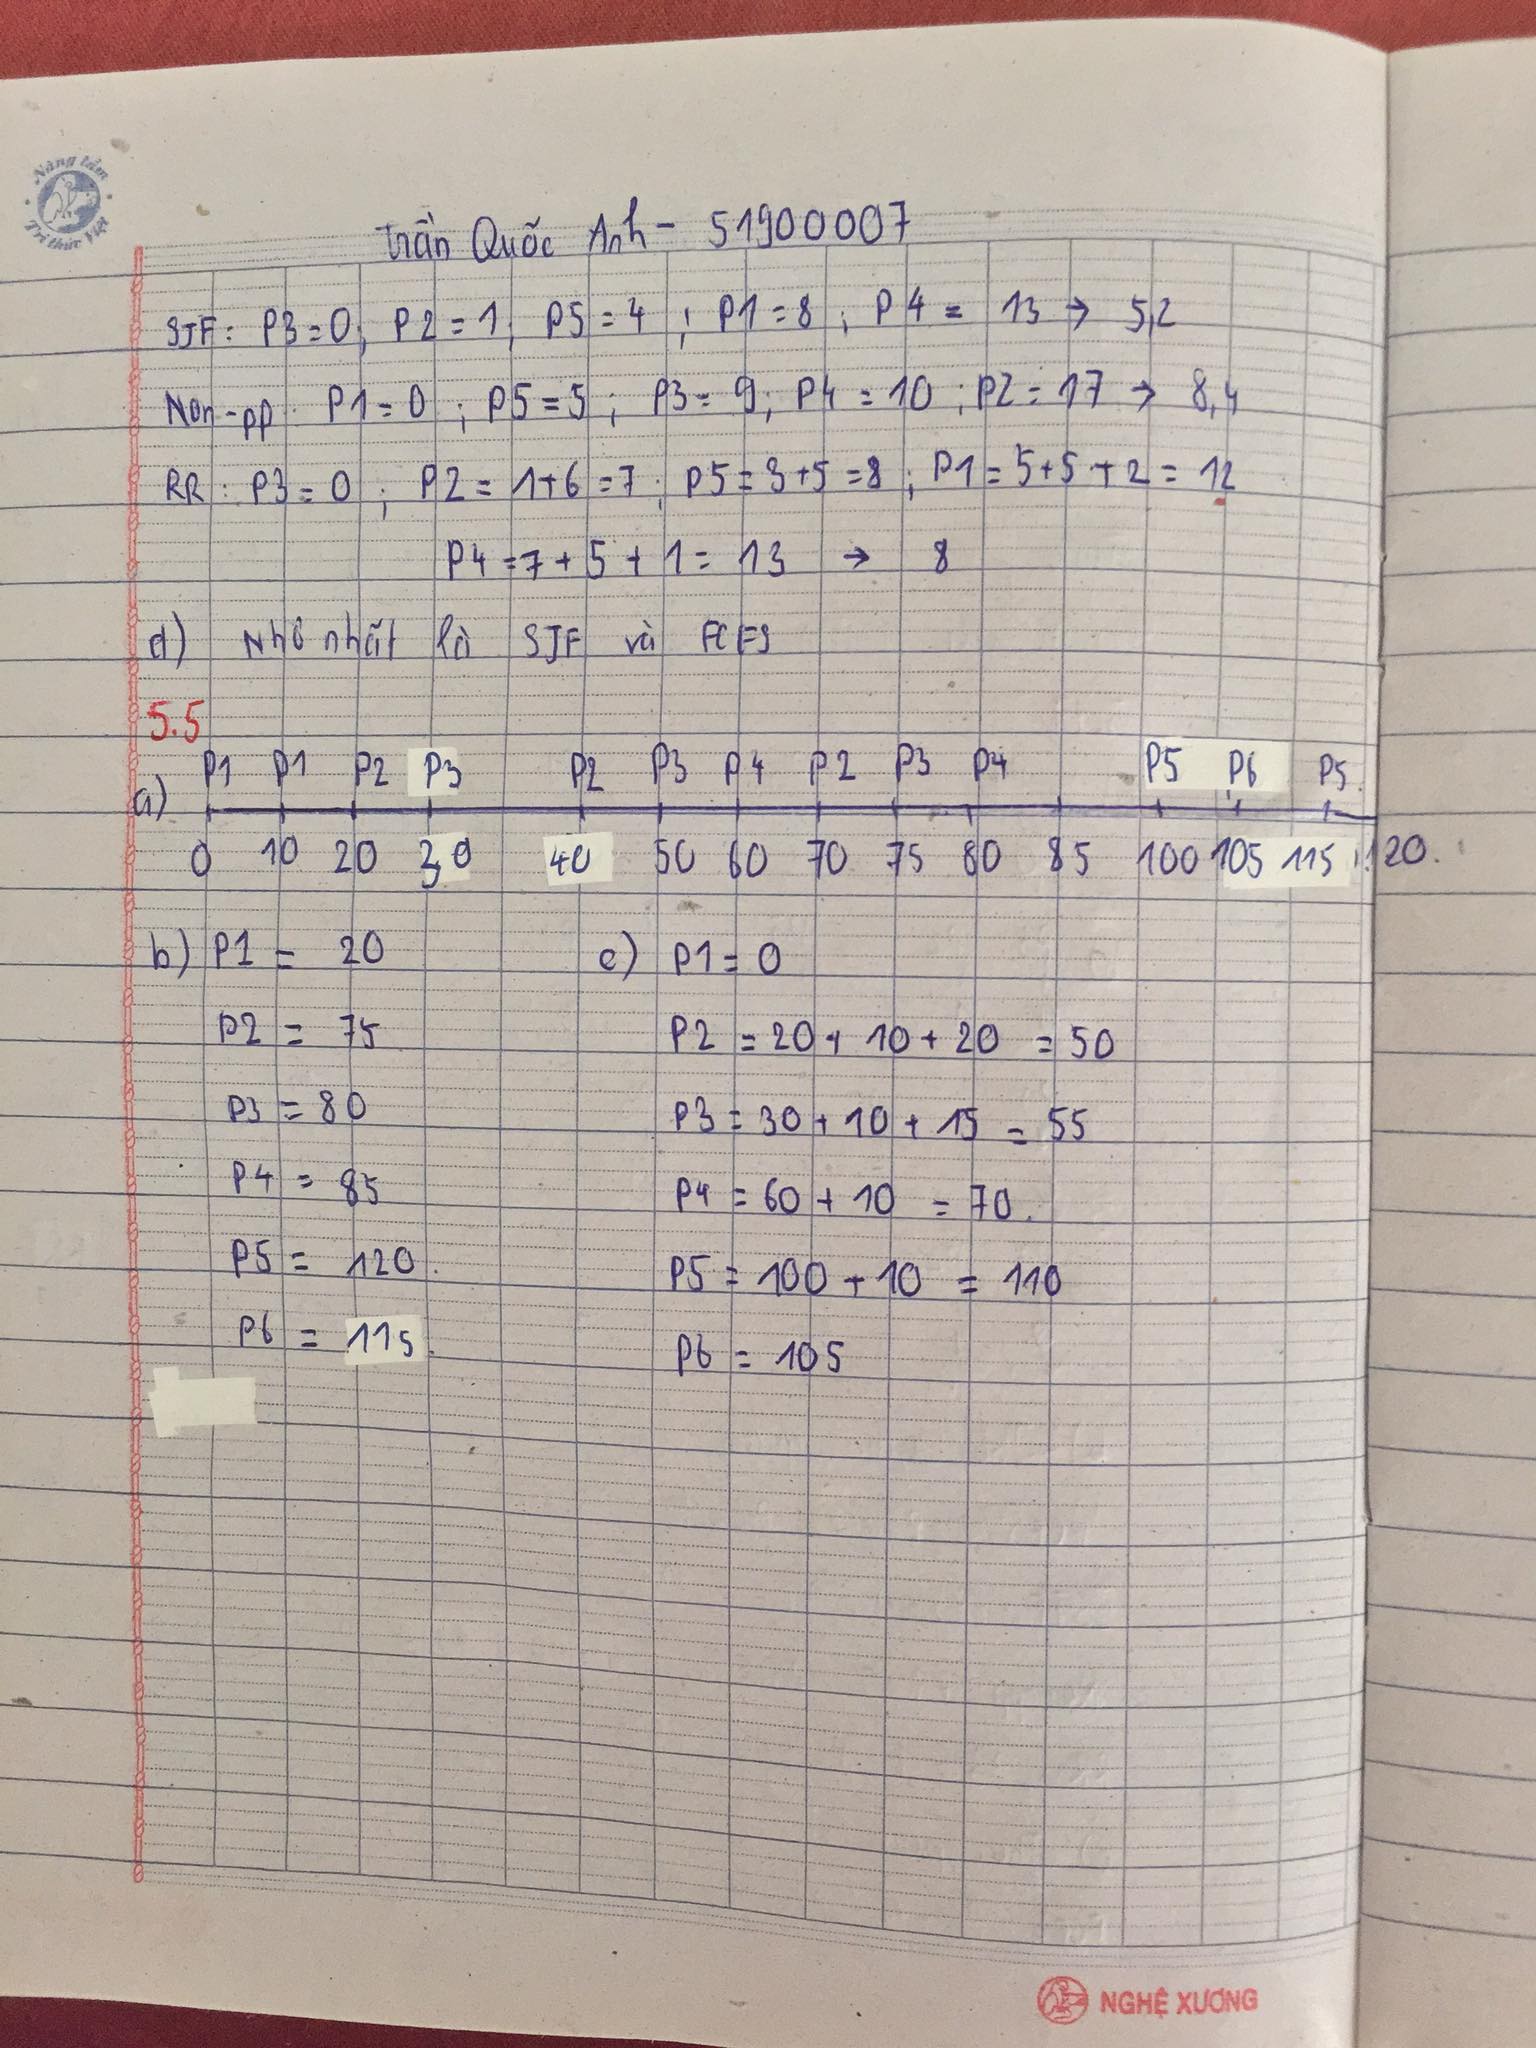 Nâng tầm
Tri thức Việt
Trần Quốc Anh - 51900007
SJF: P3 = 0; P2 = 1; P5 = 4; P1 = 8; P4 = 13 → 5,2
Non-pp: P1 = 0; P5 = 5; P3 = 9; P4 = 10; P2 = 17 → 8,4
RR: P3 = 0; P2 = 1+6 = 7; P5 = 3+5 = 8; P1 = 5+5+2 = 12
P4 = 7+5+1 = 13 → 8
d) Nhỏ nhất là SJF và FCFS
5.5
P1 P1 P2 P3 P2 P3 P4 P2 P3 P4 P5 P6 P5
a)
0 10 20 30 40 50 60 70 75 80 85 100 105 115 120.
b) P1 = 20 c) P1 = 0
P2 = 75 P2 = 20 + 10 + 20 = 50
P3 = 80 P3 = 30 + 10 + 15 = 55
P4 = 85 P4 = 60 + 10 = 70.
P5 = 120. P5 = 100 + 10 = 110
P6 = 115. P6 = 105
NGHỆ XƯƠNG